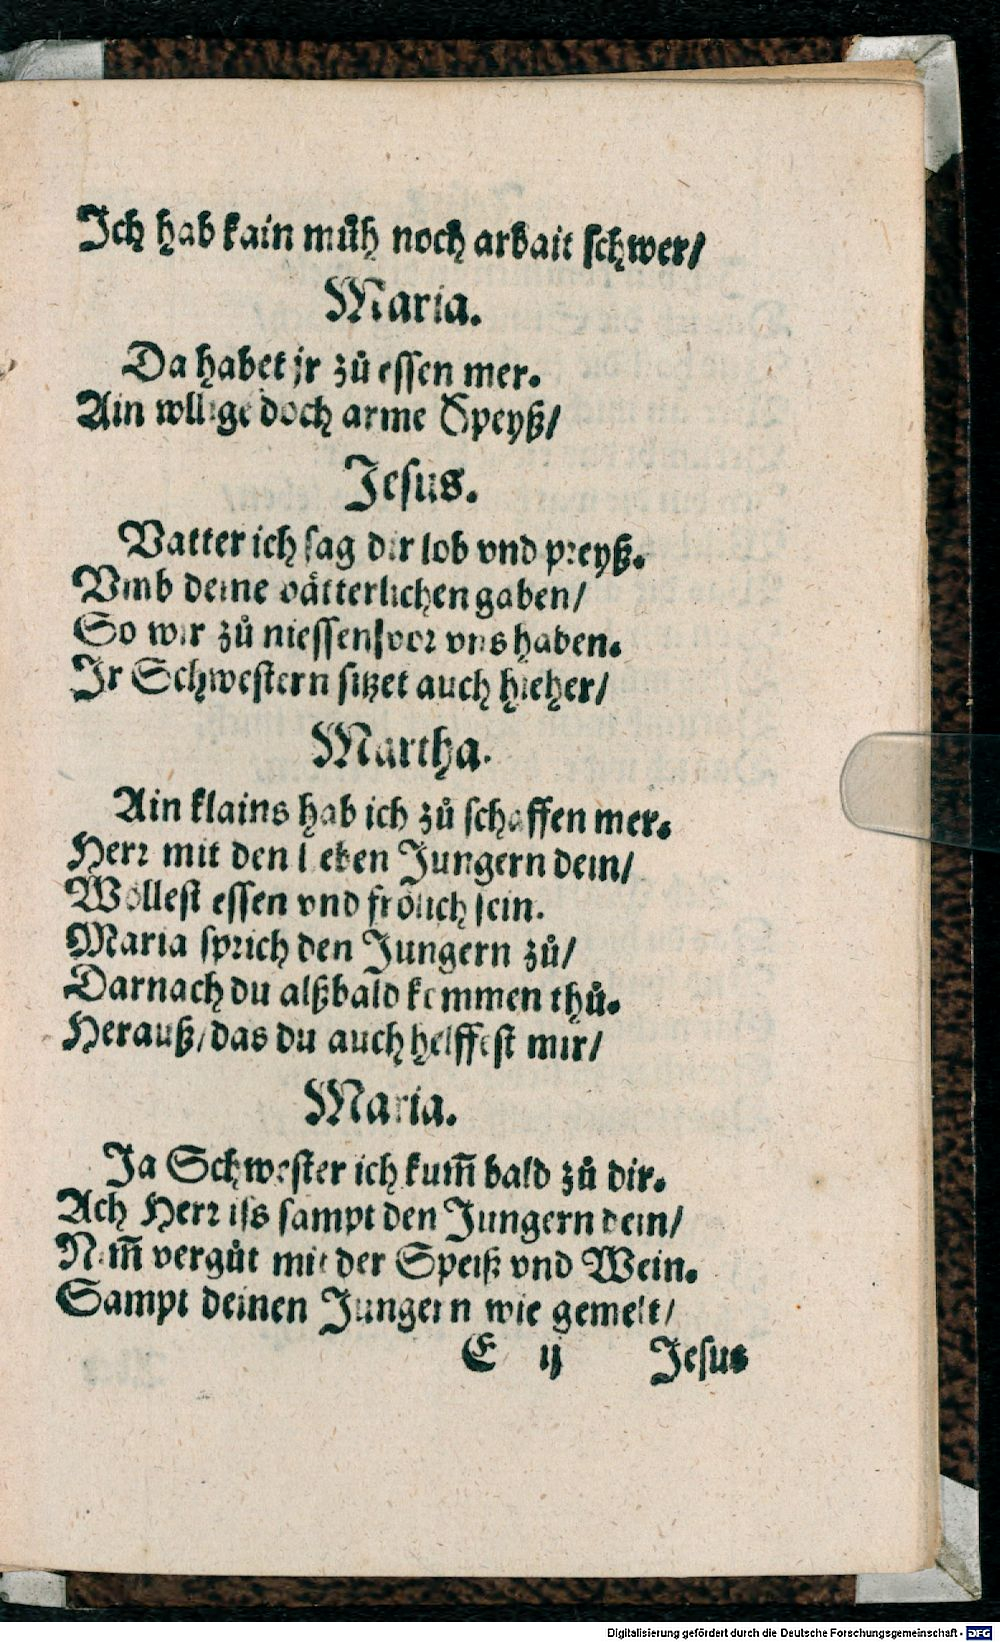 Ich hab kain müh noch arbait schwer/
Maria.
Da habet jr zů essen mer.
Ain wllige doch arme Speyß/
Jesus.
Vatter ich sag dir lob vnd preyß.
Vmb deine vätterlichen gaben/
So wir zů niessen vor vns haben.
Ir Schwestern sitzet auch hieher/
Martha.
Ain klains hab ich zů schaffen mer.
Herr mit den lieben Jungern dein/
Wöllest essen vnd frölich sein.
Maria sprich den Jungern zů/
Darnach du alßbald kommen thů.
Herauß/ das du auch helffest mir/
Maria.
Ja Schwester ich kum̃ bald zů dir.
Ach Herr iss sampt den Jungern dein/
Nim̃ vergůt mit der Speiß vnd Wein.
Sampt deinen Jungern wie gemelt/
E ij Jesus
Digitalisierung gefördert durch die Deutsche Forschungsgemeinschaft - DFG